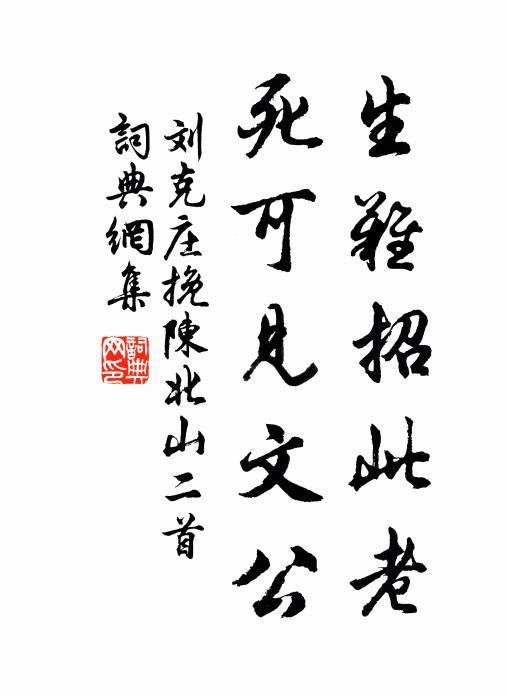 生難招此老
死可見文公
刘克庄挽陳北山二首
詞典網集
詞典網印